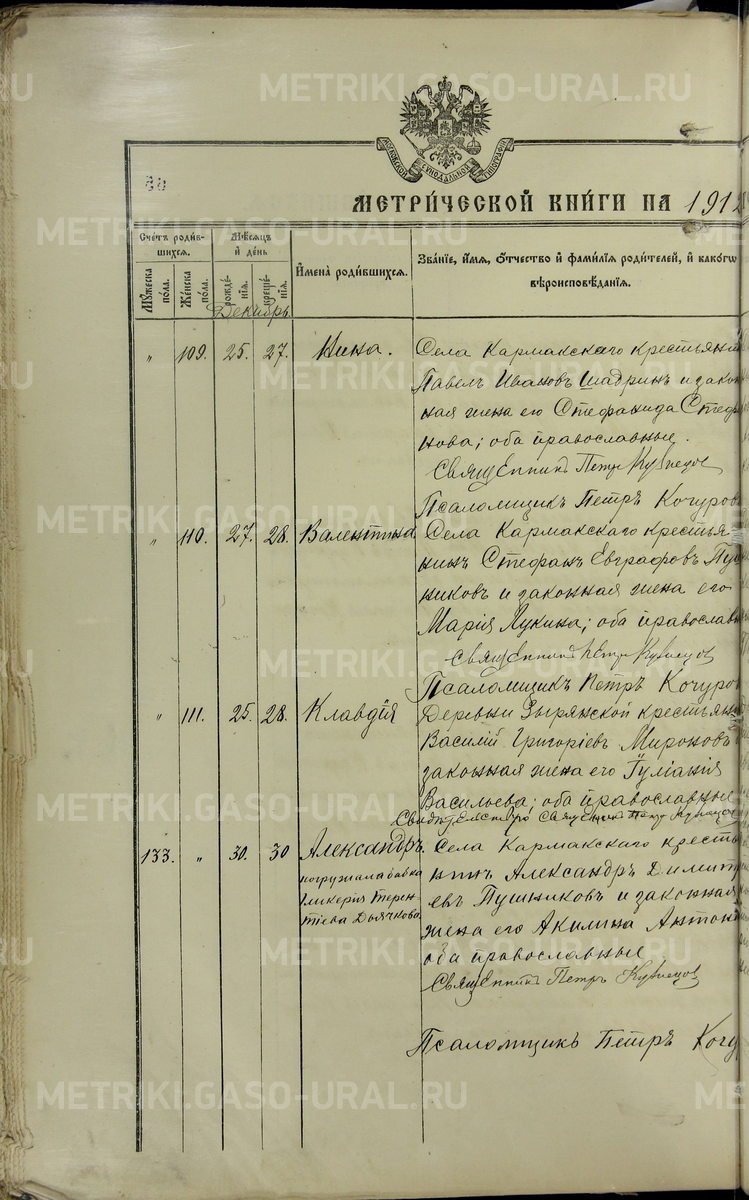 METRIKI.GASO-URAL.RU
МОСКОВСКОЙ СѴНОДАЛЬНОЙ ТИПОГРАФІИ
МЕТРИ́ЧЕСКОЙ КНИ́ГИ НА 1912
Счетъ роди́вшихся.
Мꙋ́жеска по́ла.
Же́нска по́ла.
Мѣ́сяцъ и҆ де́нь
рожде́нія.
креще́нія.
И҆мена̀ роди́вшихся.
Зва́ніе, и҆́мя, ѻ҆́тчество и҆ фами́лія роди́телей, и҆ како́гѡ
вѣроисповѣ́данія.
Декабрь
„ 109. 25. 27. Нина. Села Кармакскаго крестьянин
Павелъ Ивановъ Шадринъ и закон
ная жена его Стефанида Стефа
нова; оба православные.
Священникъ Петръ Кузнецов
Псаломщикъ Петръ Кочуров
„ 110. 27. 28. Валентина. Села Кармакскаго крестья-
нинъ Стефанъ Евграфовъ Пуш
ников и законная жена его
Марія Лукина; оба православ
Священникъ Петръ Кузнецов
Псаломщикъ Петръ Кочуров
„ 111. 25. 28. Клавдія Деревни Зырянской крестьян
Василій Григоріевъ Миронов
законная жена его Іуліанія
Васильева; оба православные
Священникъ Петръ Кузнецов
133. „ 30. 30 Александръ. Села Кармакскаго кресть
погружала бабка
нинъ Александръ Димитр
Гликерія Терен-
евъ Пушников и законная
тіева Дьячкова
жена его Акилина Антон
оба православные
Священникъ Петръ Кузнецов
Псаломщикъ Петръ Кочу